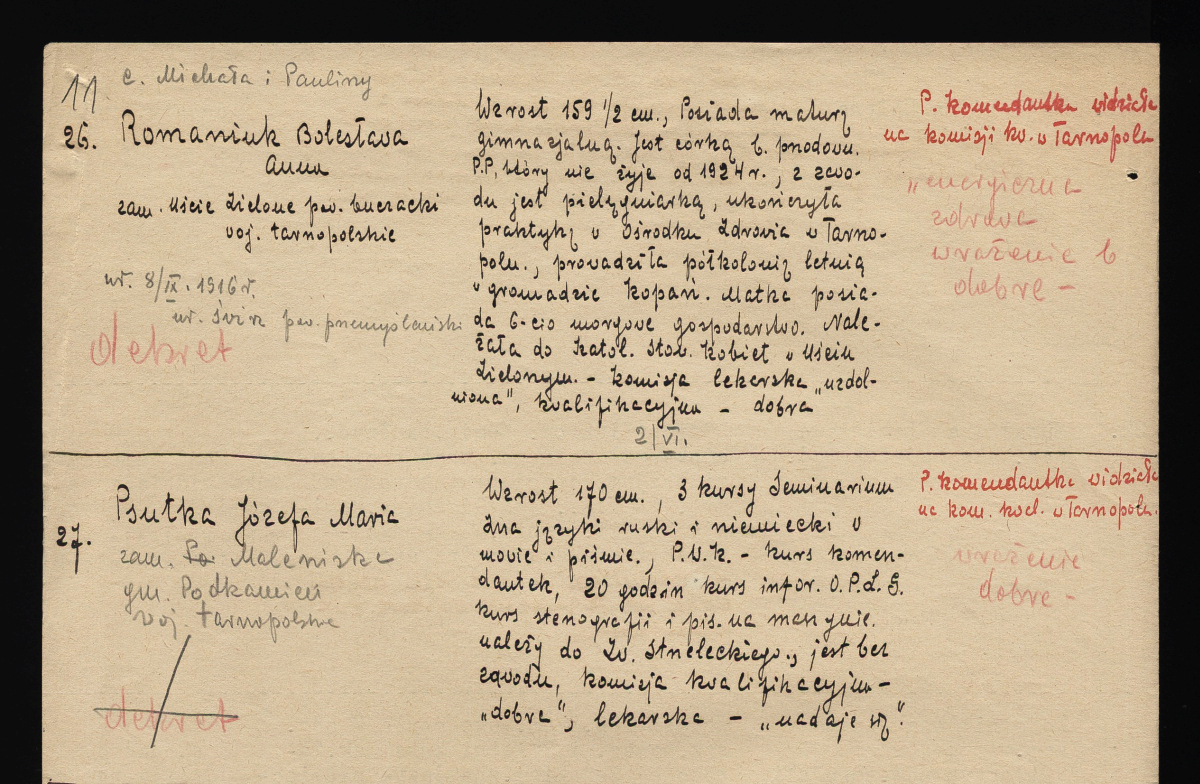 11.
c. Michała i Pauliny
26. Romaniuk Bolesława
Anna
zam. Uście Zielone pow. buczacki
woj. tarnopolskie
ur. 8/IX. 1916 r.
ur. Świrz pow. przemyślański
dekret
Wzrost 159 1/2 cm., Posiada maturę
gimnazjalną. Jest córką b. przodown.
P.P., który nie żyje od 1924 r., z zawo-
du jest pielęgniarką, ukończyła
praktykę w Ośrodku Zdrowia w Tarno-
polu., prowadziła półkolonię letnią
w gromadzie Kopań. Matka posia-
da 6-cio morgowe gospodarstwo. Nale-
żała do Katol. Stow. Kobiet w Uściu
Zielonym. - Komisja lekarska „uzdol-
niona”, kwalifikacyjna - dobra
2/VI.
P. komendantka widziała
na komisji kw. w Tarnopolu
„energiczna
zdrowa
wrażenie b
dobre -
27. Psutka Józefa Maria
zam. Maleniska
gm. Podkamień
woj. tarnopolskie
dekret
Wzrost 170 cm., 3 kursy Seminarium
zna języki ruski i niemiecki w
mowie i piśmie., P.W.K. - kurs komen-
dantek, 20 godzin kurs infor. O.P.L.G.
kurs stenografii i pis. na maszynie.
należy do Zw. Strzeleckiego., jest bez
zawodu, komisja kwalifikacyjna -
„dobre”, lekarska - „nadaje się”.
P. komendantka widziała
na kom. kwal. w Tarnopolu.
wrażenie
dobre -